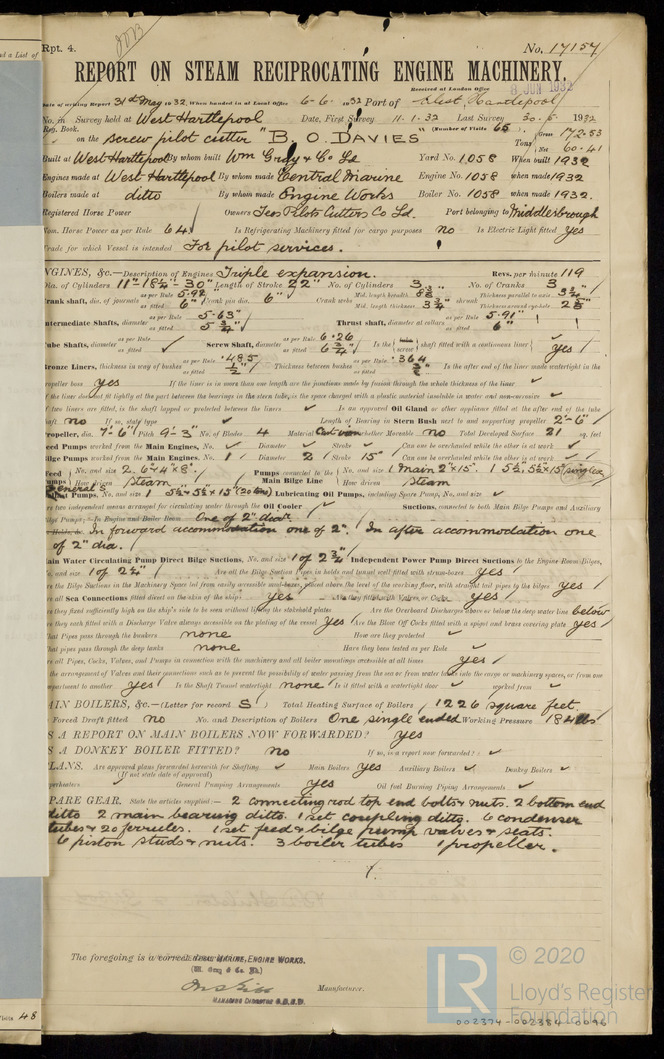 Rpt. 4.
No. 17157
REPORT ON STEAM RECIPROCATING ENGINE MACHINERY.
Received at London Office 8 JUN 1932
Date of writing Report 31st May 1932. When handed in at Local Office 6-6-1932 Port of West Hartlepool
No. in Survey held at West Hartlepool Date, First Survey 11-1-32 Last Survey 30-5-1932
Reg. Book. (Number of Visits 65)
on the screw pilot cutter "B. O. DAVIES" Tons Gross 172.53 Net 60.41
Built at West Hartlepool By whom built Wm Gray & Co Ld Yard No. 1058 When built 1932
Engines made at West Hartlepool By whom made Central Marine Engine No. 1058 when made 1932
Boilers made at ditto By whom made Engine Works Boiler No. 1058 when made 1932.
Registered Horse Power Owners Tees Pilots Cutters Co Ld. Port belonging to Middlesbrough
Nom. Horse Power as per Rule 64 Is Refrigerating Machinery fitted for cargo purposes no Is Electric Light fitted yes
Trade for which Vessel is intended For pilot services.
ENGINES, &c.—Description of Engines Triple expansion. Revs. per minute 119
Dia. of Cylinders 11"-18½"-30" Length of Stroke 22" No. of Cylinders 3 No. of Cranks 3
Crank shaft, dia. of journals as per Rule 5.92 as fitted 6" Crank pin dia. 6" Crank webs Mid. length breadth Mid. length thickness 3¾" shrunk Thickness parallel to axis 3¾" Thickness around eye-hole
Intermediate Shafts, diameter as per Rule 5.63" as fitted 5¾" Thrust shaft, diameter at collars as per Rule 5.91" as fitted 6"
Tube Shafts, diameter as per Rule as fitted Screw Shaft, diameter as per Rule 6.26 as fitted 6¾" Is the screw shaft fitted with a continuous liner yes
Bronze Liners, thickness in way of bushes as per Rule .485 as fitted ½" Thickness between bushes as per Rule .364 as fitted Is the after end of the liner made watertight in the
propeller boss yes If the liner is in more than one length are the junctions made by fusion through the whole thickness of the liner
If the liner does not fit tightly at the part between the bearings in the stern tube, is the space charged with a plastic material insoluble in water and non-corrosive
If two liners are fitted, is the shaft lapped or protected between the liners Is an approved Oil Gland or other appliance fitted at the after end of the tube
shaft no If so, state type Length of Bearing in Stern Bush next to and supporting propeller 2'-6"
Propeller, dia. 7'-6" Pitch 9'-3" No. of Blades 4 Material Cast iron whether Moveable no Total Developed Surface 21 sq. feet
Feed Pumps worked from the Main Engines, No. Diameter Stroke Can one be overhauled while the other is at work
Bilge Pumps worked from the Main Engines, No. 1 Diameter 2" Stroke 15" Can one be overhauled while the other is at work
Feed Pumps No. and size 2. 6"×4"×8" How driven Steam Pumps connected to the Main Bilge Line No. and size 1 Main 2"×15". 1 5½×5½×15 (simplex) How driven Steam
General S
Ballast Pumps, No. and size 1 5½×5½×15 (20 tons) Lubricating Oil Pumps, including Spare Pump, No. and size
Are two independent means arranged for circulating water through the Oil Cooler Suctions, connected to both Main Bilge Pumps and Auxiliary
Bilge Pumps;—In Engine and Boiler Room One of 2" diar.
In forward accommodation one of 2". In after accommodation one
of 2" dia.
Main Water Circulating Pump Direct Bilge Suctions, No. and size 1 of 2¾" Independent Power Pump Direct Suctions to the Engine Room Bilges,
No. and size 1 of 2¼" Are all the Bilge Suction Pipes in holds and tunnel well fitted with strum-boxes yes
Are the Bilge Suctions in the Machinery Space led from easily accessible mud-boxes, placed above the level of the working floor, with straight tail pipes to the bilges yes
Are all Sea Connections fitted direct on the skin of the ship yes Are they fitted with Valves or Cocks yes
Are they fixed sufficiently high on the ship's side to be seen without lifting the stokehold plates Are the Overboard Discharges above or below the deep water line below
Are they each fitted with a Discharge Valve always accessible on the plating of the vessel yes Are the Blow Off Cocks fitted with a spigot and brass covering plate yes
What Pipes pass through the bunkers none How are they protected
What pipes pass through the deep tanks none Have they been tested as per Rule
Are all Pipes, Cocks, Valves, and Pumps in connection with the machinery and all boiler mountings accessible at all times yes
Is the arrangement of Valves and their connections such as to prevent the possibility of water passing from the sea or from water tanks into the cargo or machinery spaces, or from one
compartment to another yes Is the Shaft Tunnel watertight none Is it fitted with a watertight door worked from
MAIN BOILERS, &c.—(Letter for record S) Total Heating Surface of Boilers 1226 square feet.
Is Forced Draft fitted no No. and Description of Boilers One single ended Working Pressure 184 lbs
IS A REPORT ON MAIN BOILERS NOW FORWARDED? yes
IS A DONKEY BOILER FITTED? no If so, is a report now forwarded?
PLANS. Are approved plans forwarded herewith for Shafting Main Boilers yes Auxiliary Boilers Donkey Boilers
(If not state date of approval)
Superheaters General Pumping Arrangements yes Oil fuel Burning Piping Arrangements
SPARE GEAR. State the articles supplied:— 2 connecting rod top end bolts & nuts. 2 bottom end
ditto 2 main bearing ditto. 1 set coupling ditto. 6 condenser
tubes & 20 ferrules. 1 set feed & bilge pump valves & seats.
6 piston studs & nuts. 3 boiler tubes 1 propeller.
The foregoing is a correct CENTRAL MARINE ENGINE WORKS.
Manufacturer.
© 2020
LR
Lloyd's Register
Foundation
002374-002384-0096
48